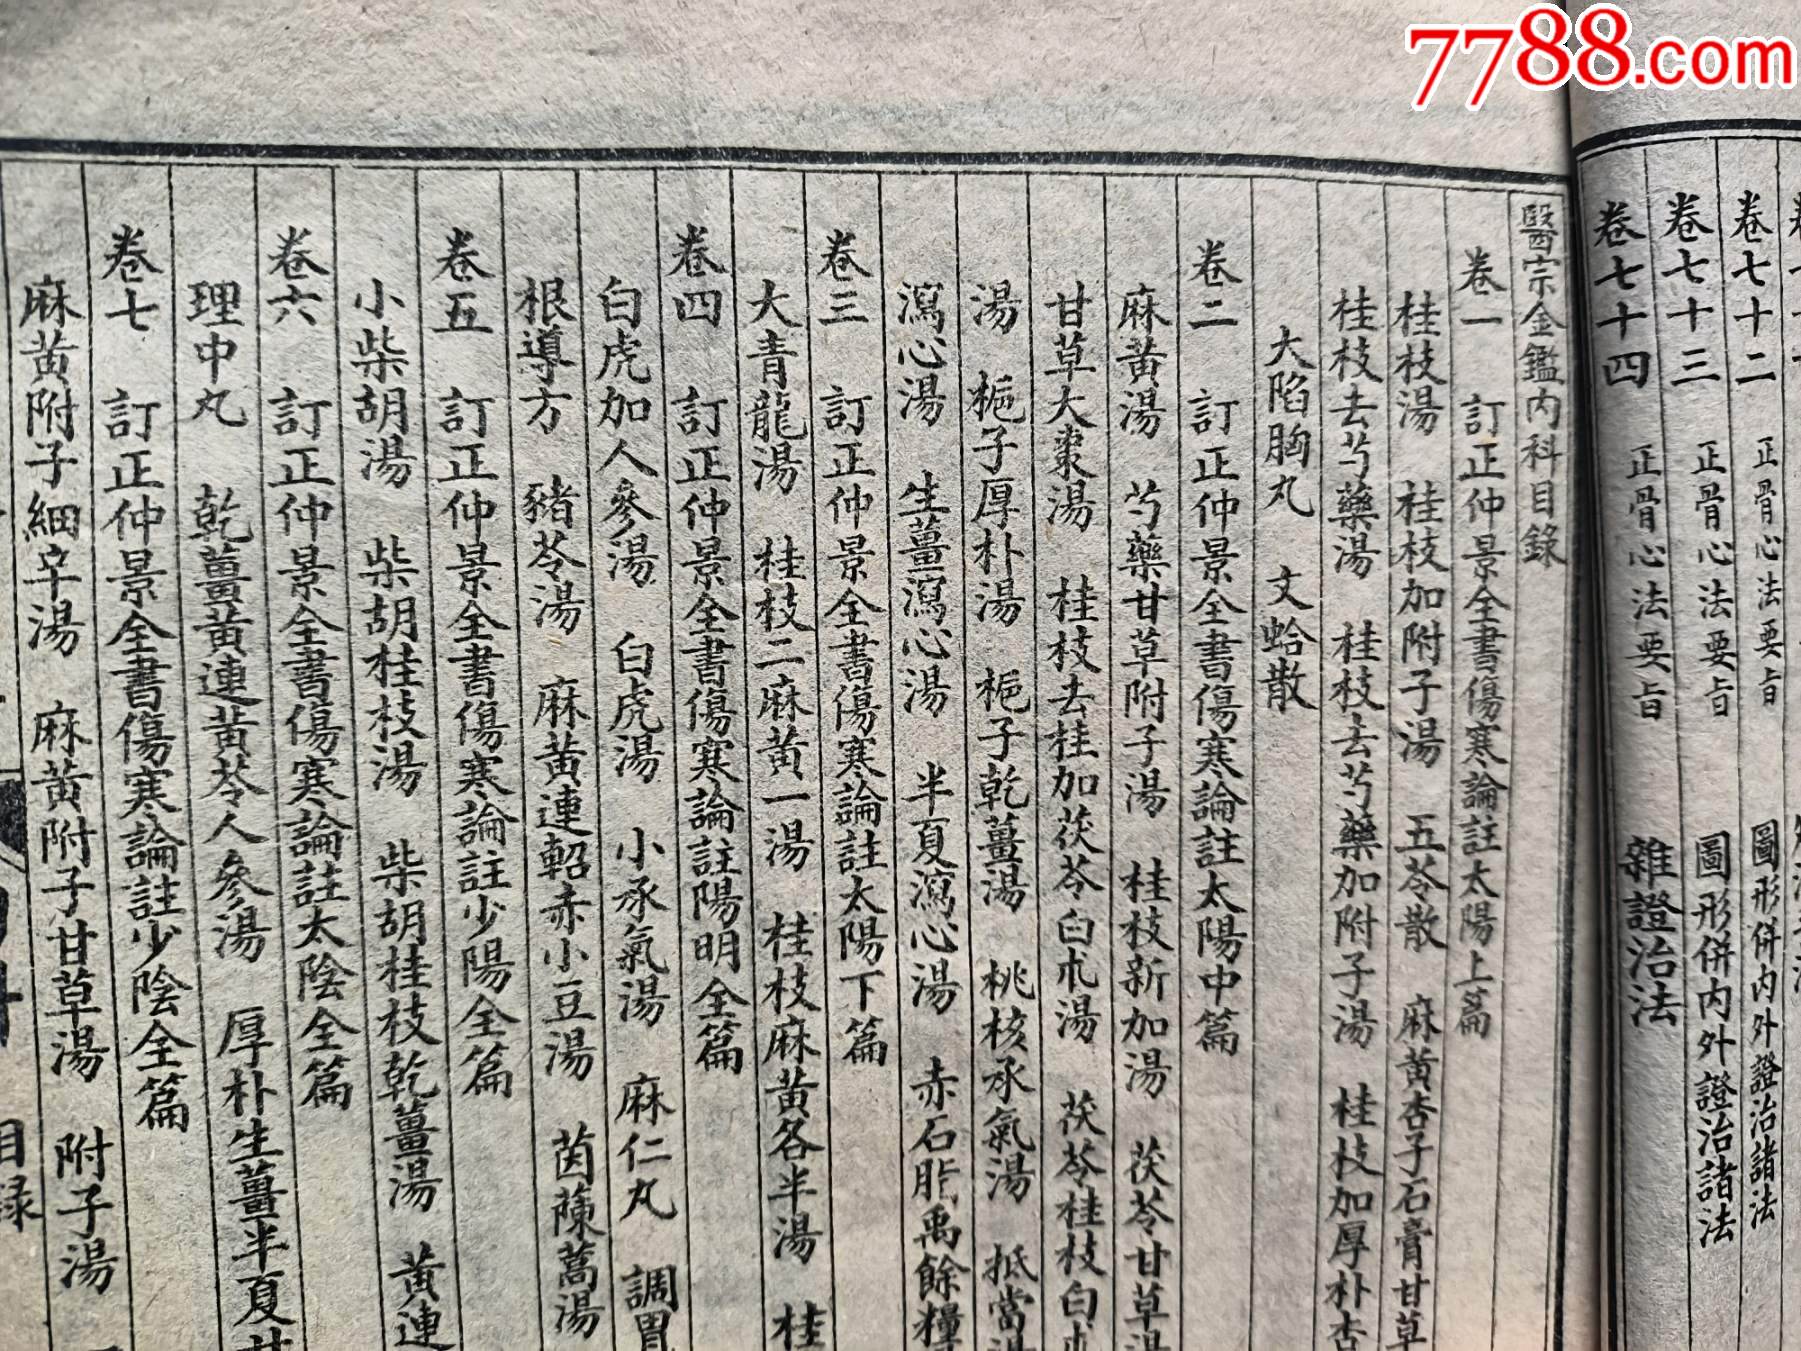 7788.com
卷七十二　正骨心法要旨　圖形併內外證治諸法
卷七十三　正骨心法要旨　圖形併內外證治諸法
卷七十四　正骨心法要旨　雜證治法
醫宗金鑑內科目錄
卷一　訂正仲景全書傷寒論註太陽上篇
桂枝湯　桂枝加附子湯　五苓散　麻黃杏子石膏甘草
桂枝去芍藥湯　桂枝去芍藥加附子湯　桂枝加厚朴杏
大陷胸丸　文蛤散
卷二　訂正仲景全書傷寒論註太陽中篇
麻黃湯　芍藥甘草附子湯　桂枝新加湯　茯苓甘草湯
甘草大棗湯　桂枝去桂加茯苓白朮湯　茯苓桂枝白朮
湯　梔子厚朴湯　梔子乾薑湯　桃核承氣湯　抵當湯
瀉心湯　生薑瀉心湯　半夏瀉心湯　赤石脂禹餘糧
卷三　訂正仲景全書傷寒論註太陽下篇
大青龍湯　桂枝二麻黃一湯　桂枝麻黃各半湯　桂
卷四　訂正仲景全書傷寒論註陽明全篇
白虎加人參湯　白虎湯　小承氣湯　麻仁丸　調胃
根導方　豬苓湯　麻黃連軺赤小豆湯　茵蔯蒿湯
卷五　訂正仲景全書傷寒論註少陽全篇
小柴胡湯　柴胡桂枝湯　柴胡桂枝乾薑湯　黃連
卷六　訂正仲景全書傷寒論註太陰全篇
理中丸　乾薑黃連黃芩人參湯　厚朴生薑半夏甘
卷七　訂正仲景全書傷寒論註少陰全篇
麻黃附子細辛湯　麻黃附子甘草湯　附子湯
目錄